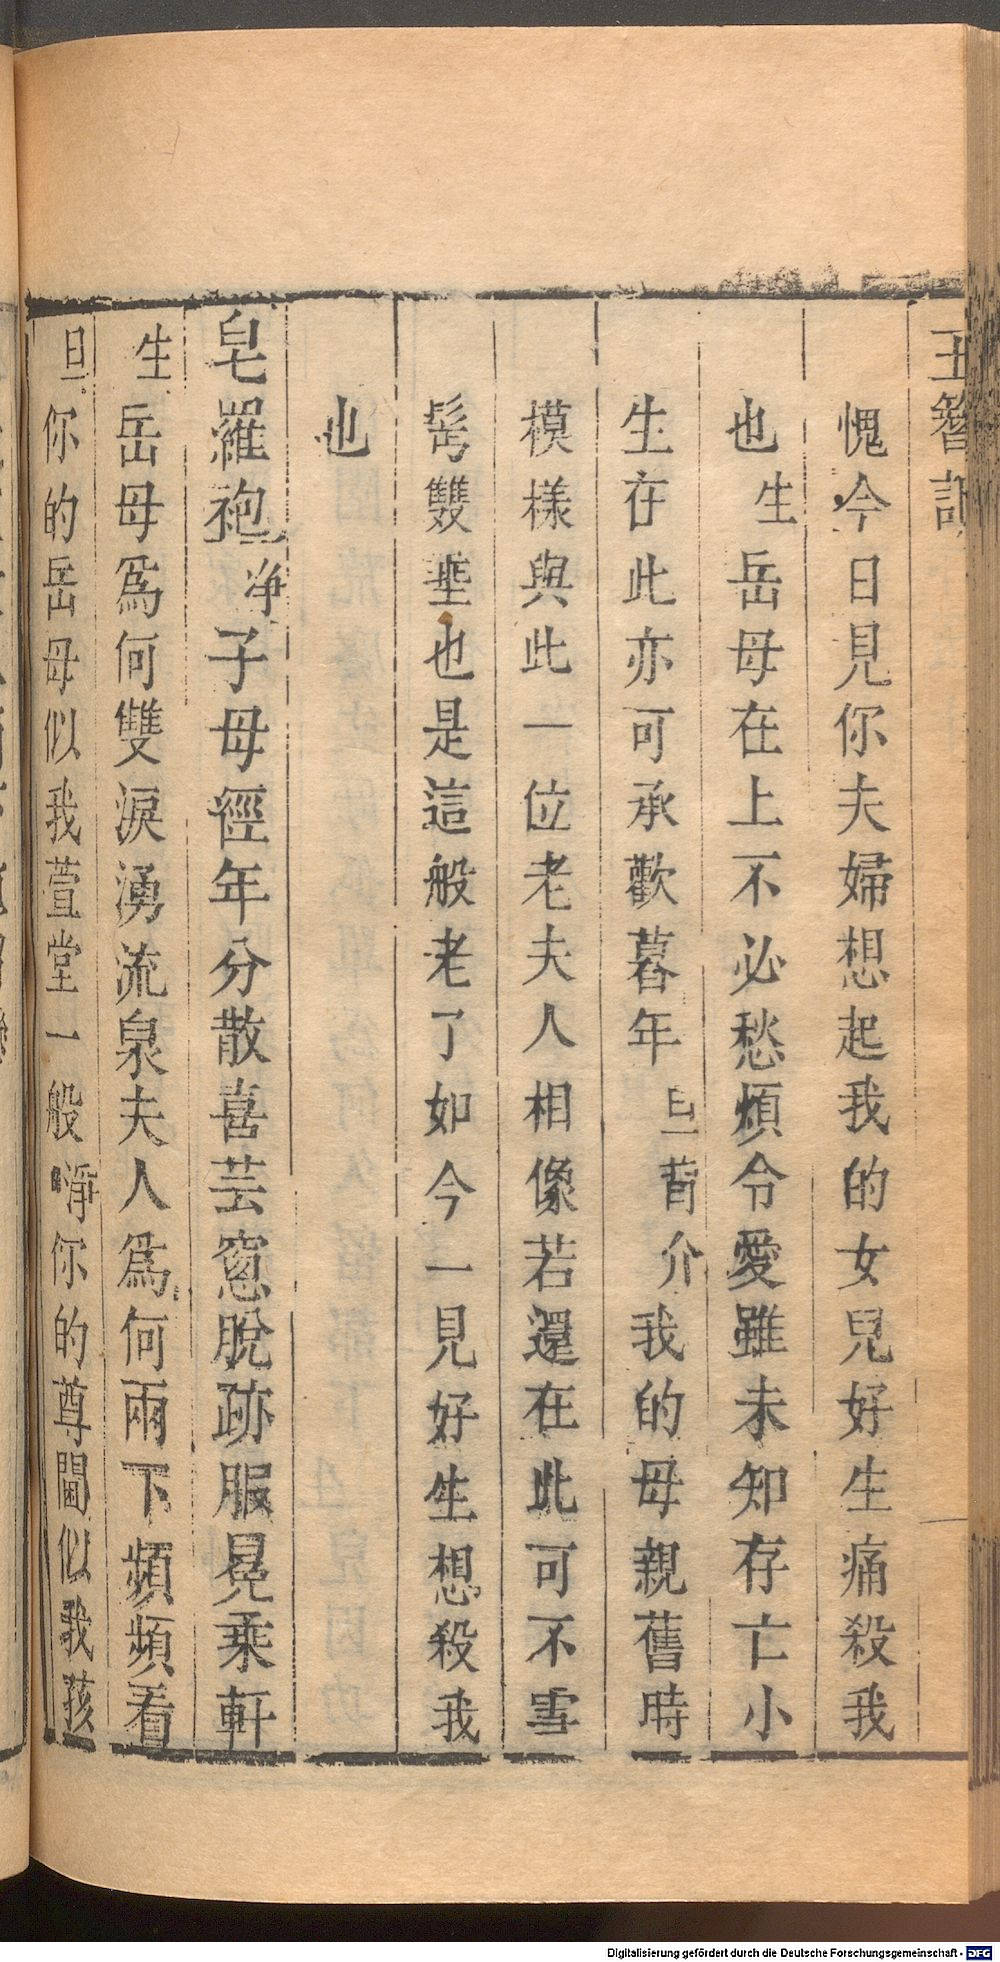 玉簪記
愧今日見你夫婦想起我的女兒好生痛殺我
也生岳母在上不必愁煩令愛雖未知存亡小
生在此亦可承歡暮年旦背介我的母親舊時
模樣與此一位老夫人相像若還在此可不雪
髩雙垂也是這般老了如今一見好生想殺我
也
皂羅袍净子母經年分散喜芸窻脫跡服冕乘軒
生岳母爲何雙淚湧流泉夫人爲何兩下頻頻看
旦你的岳母似我萱堂一般净你的尊閫似我孩
Digitalisierung gefördert durch die Deutsche Forschungsgemeinschaft - DFG